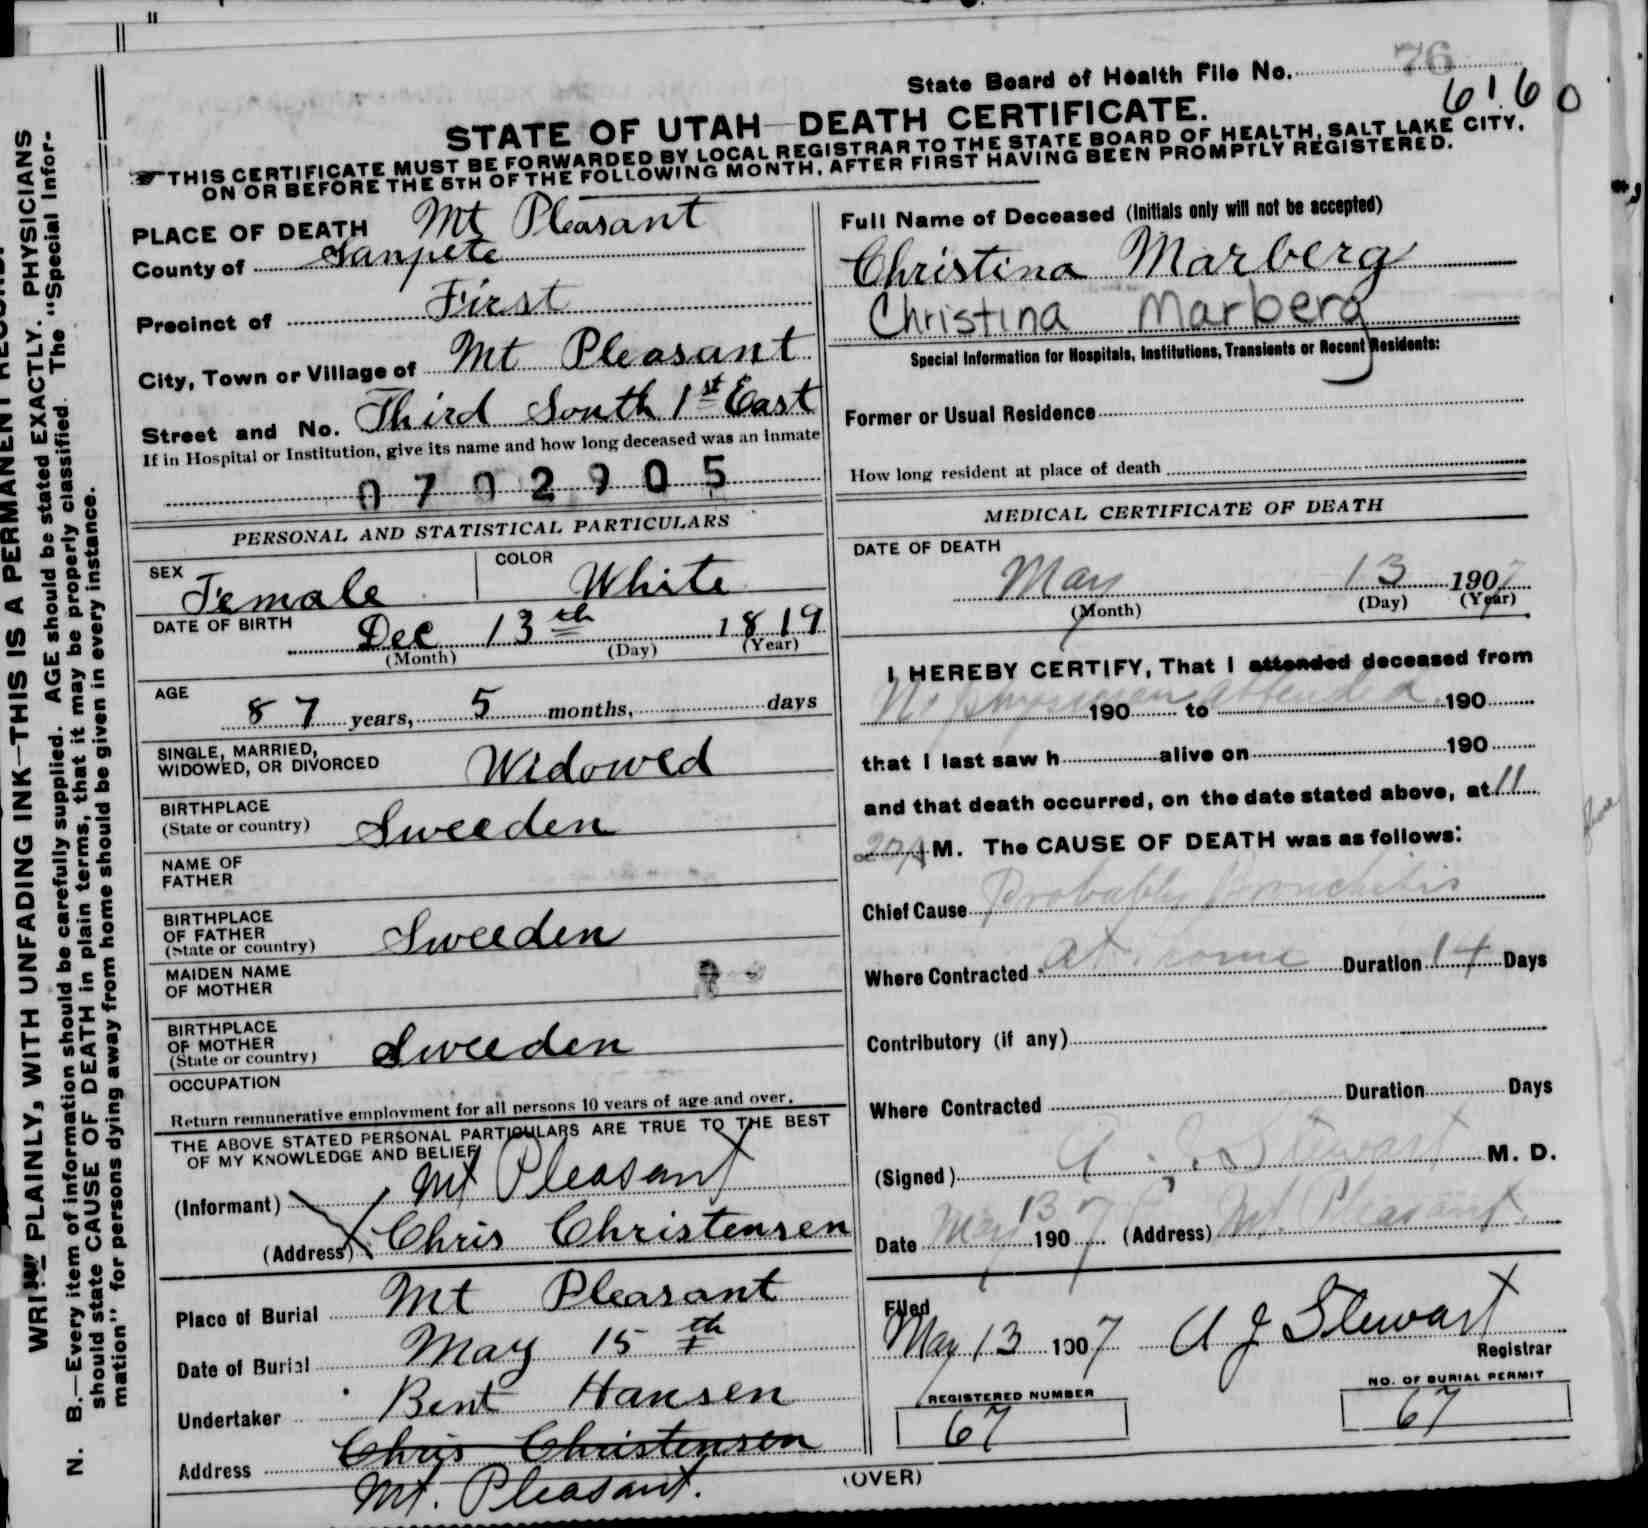 State Board of Health File No. 76
6160
STATE OF UTAH—DEATH CERTIFICATE.
THIS CERTIFICATE MUST BE FORWARDED BY LOCAL REGISTRAR TO THE STATE BOARD OF HEALTH, SALT LAKE CITY,
ON OR BEFORE THE 5TH OF THE FOLLOWING MONTH, AFTER FIRST HAVING BEEN PROMPTLY REGISTERED.
PLACE OF DEATH Mt Pleasant
County of Sanpete
Precinct of First
City, Town or Village of Mt Pleasant
Street and No. Third South 1st East
If in Hospital or Institution, give its name and how long deceased was an inmate
0702905
PERSONAL AND STATISTICAL PARTICULARS
SEX Female COLOR White
DATE OF BIRTH Dec 13th 1819
(Month) (Day) (Year)
AGE 87 years, 5 months, days
SINGLE, MARRIED,
WIDOWED, OR DIVORCED Widowed
BIRTHPLACE
(State or country) Sweeden
NAME OF
FATHER
BIRTHPLACE
OF FATHER
(State or country) Sweeden
MAIDEN NAME
OF MOTHER
BIRTHPLACE
OF MOTHER
(State or country) Sweeden
OCCUPATION
Return remunerative employment for all persons 10 years of age and over.
THE ABOVE STATED PERSONAL PARTICULARS ARE TRUE TO THE BEST
OF MY KNOWLEDGE AND BELIEF
(Informant) Mt Pleasant
(Address) Chris Christensen
Place of Burial Mt Pleasant
Date of Burial May 15th
Undertaker Bent Hansen
Address Chris Christensen
Mt. Pleasant.
Full Name of Deceased (Initials only will not be accepted)
Christina Marberg
Christina Marberg
Special Information for Hospitals, Institutions, Transients or Recent Residents:
Former or Usual Residence
How long resident at place of death
MEDICAL CERTIFICATE OF DEATH
DATE OF DEATH
May 13 1907
(Month) (Day) (Year)
I HEREBY CERTIFY, That I attended deceased from
No physician attended 190 to 190
that I last saw h alive on 190
and that death occurred, on the date stated above, at 11
M. The CAUSE OF DEATH was as follows:
Chief Cause Probably Bronchitis
Where Contracted at home Duration 14 Days
Contributory (if any)
Where Contracted Duration Days
(Signed) A. J. Stewart M. D.
Date May 13 1907 (Address) Mt. Pleasant
Filed
May 13 1907 A J Stewart
Registrar
REGISTERED NUMBER
67
NO. OF BURIAL PERMIT
67
(OVER)
WRITE PLAINLY, WITH UNFADING INK—THIS IS A PERMANENT RECORD.
N. B.—Every item of information should be carefully supplied. AGE should be stated EXACTLY. PHYSICIANS
should state CAUSE OF DEATH in plain terms, that it may be properly classified. The "Special Infor-
mation" for persons dying away from home should be given in every instance.